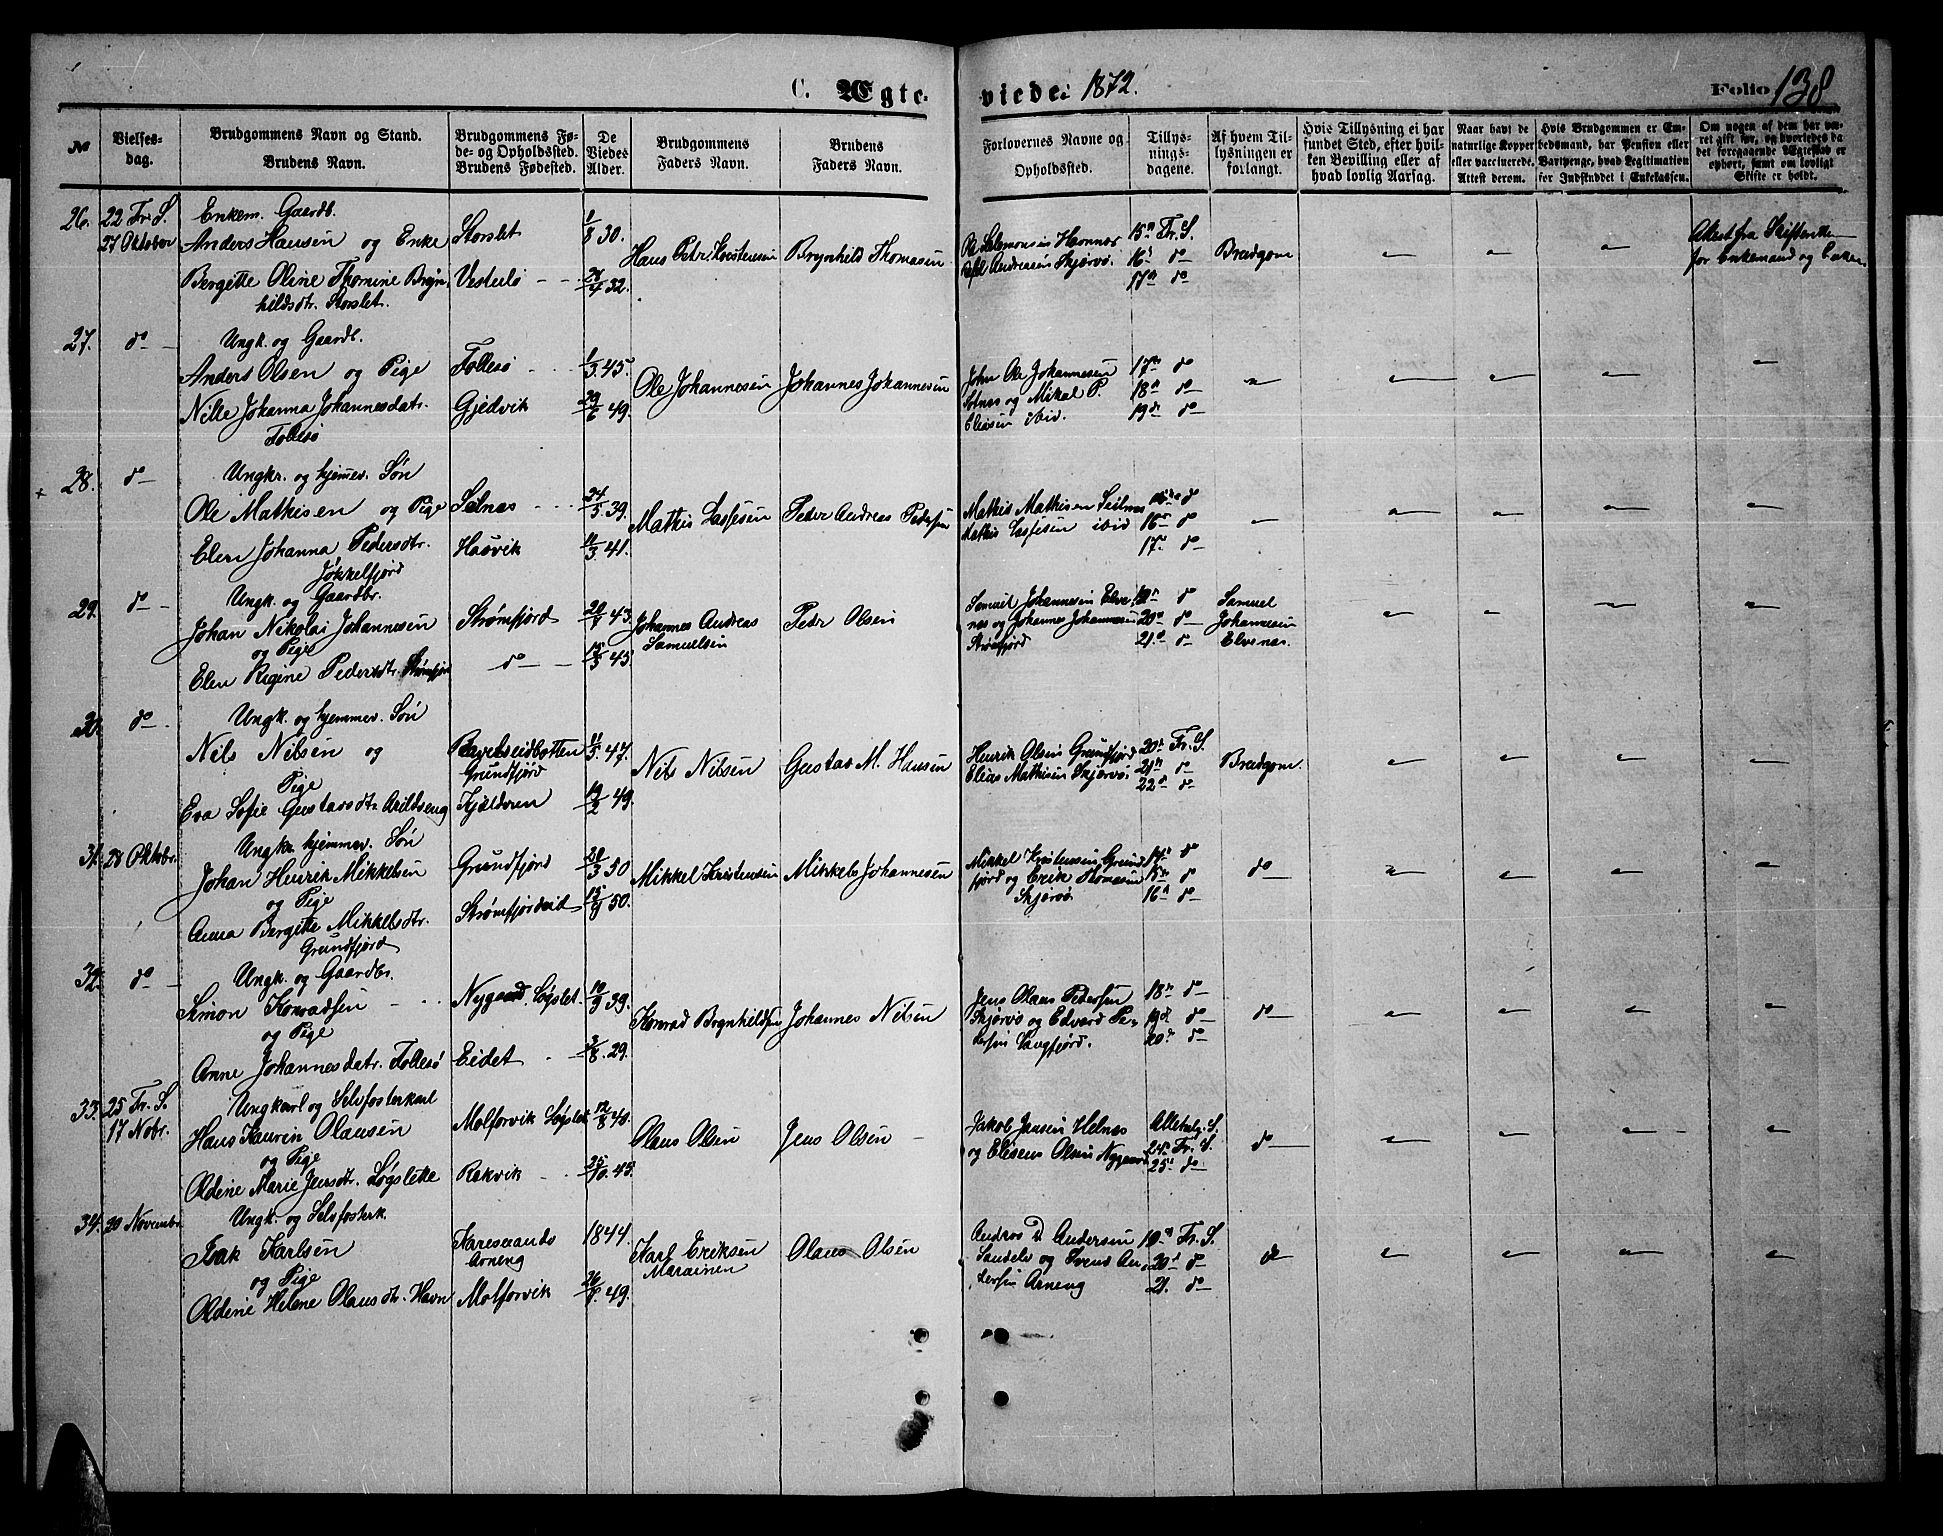 C. Ægte-
viede: 1872.
Folio 138
No
Vielses-
dag.
Brudgommens Navn og Stand.
Brudens Navn.
Brudgommens Fø-
de- og Opholdssted.
Brudens Fødested.
De
Viedes
Alder.
Brudgommens
Faders Navn.
Brudens
Faders Navn.
Forlovernes Navne og
Opholdssted.
Tillys-
nings-
dagene.
Af hvem Til-
lysningen er
forlangt.
Hvis Tillysning ei har
fundet Sted, efter hvil-
ken Bevilling eller af
hvad lovlig Aarsag.
Naar havt de
naturlige Kopper
eller vaccinerede.
Attest derom.
Hvis Brudgommen er Em-
bedsmand, har Pension eller
Vartpenge, hvad Legitimation
for Indskuddet i Enkekassen.
Om nogen af dem har væ-
ret gift før, og hvorledes da
det foregaaende Ægteskab er
ophørt, samt om lovligt
Skifte er holdt.
26. 22 Fr. S.
27 Oktober
Enkem. Gaardb.
Anders Hansen og Enke
Bergitte Oline Thomine Bryn-
hildsdtr. Storslet.
Storslet
Vesterlø
1/8 30.
24/4 32.
Hans Petr. Kristensen
Brynhild Thomasen
Ole Salomonsen Havnnes
Andreasen Skjervø
15n Fr. S.
16n do
17n do
Brudgom
Attest fra Skifteretten
for Enkemand og Enken
27. do
Ungk. og Gaardb.
Anders Olsen og Pige
Nille Johanna Johannesdatr.
Follesø
Follesø
Gjedvik
1/3 45.
29/6 49.
Ole Johannesen
Johannes Johannesen
John Ole Johannesen
Solnes og Mikal P.
Eliasen ibid.
17n do
18n do
19de do
28. do
Ungkr. og hjemmev. Søn
Ole Mathisen og Pige
Elen Johanna Pedersdtr.
Jøkkelfjord
Selnæs
Haavik
24/5 39.
11/3 41.
Mathis Lassesen
Peder Andreas Pedersen
Mathis Mathisen Seilnæs
Mathis Lassesen ibid
15de do
16n do
17. do
29. do
Ungk. og Gaardbr.
Johan Nikolai Johannesen
og Pige
Elen Regine Pedersdtr. Strømfjord
Strømfjord
do
43.
15/3 45
Johannes Andreas
Samuelsen
Peder Olsen
Samuel Johannesen Elve-
nes og Johannes Johannesen
Strømfjord
19n do
20n do
21n do
Samuel
Johannesen
Elvenes
30. do
Ungk. og hjemmev. Søn
Nils Nilsen og
Pige
Eva Sofie Gustavsdtr. Arildseng
Ravelseidbotten
Grundfjord
Kjælderen
11/3 47.
19/2 49.
Nils Nilsen
Gustav M. Hansen
Henrik Olsen Grundfjord
Elias Mathisen Skjervø
20n Fr. S.
21n do
22n do
Brudgom.
31. 28 Oktobr.
Ungkr. hjemmev. Søn
Johan Henrik Mikkelsen
og Pige
Anna Bergitte Mikkelsdtr.
Grundfjord
Grundfjord
Strømfjordeid
3 50
15/9 50.
Mikkel Kristensen
Mikkels Johannesen
Mikkel Kristensen Grund-
fjord og Erik Thomasen
Skjervø
14n do
15n do
16n do
do
32. do
Ungk. og Gaardbr.
Simon Konradsen
og Pige
Anne Johannesdatr. Follesø
Nygaard. Løgslet
Eidet
10/9 39.
3/8 29.
Konrad Brynhildsen
Johannes Nilsen
Jens Olaus Pedersen
Skjervø og Edvard Pe-
dersen Langfjord.
18n do
19de do
20n do
do
33. 25 Fr. S.
17 Nobr.
Ungkarl og Selvfosterkarl
Hans Kaurin Olausen
og Pige
Oldine Marie Jensdtr. Løgslette
Molforvik Løgslet
Rakvik
12/8 40.
25/10 45.
Olaus Olsen
Jens Olsen
Jakob Jensen Helnes
og Eliseus Olsen Nygaard
Allehelg. S.
24n Fr. S.
25n do
do
34. 20 Novembr.
Ungk. og Selvfosterk.
Isak Karlsen
og Pige
Oldine Helene Olausdtr. Havn
Karesuando
Arneng
Molforvik
1844.
49.
Karl Eriksen
Marainen
Olaus Olsen
Andreas D Andersen
Sandelv og Svend An-
dersen Arneng
19n Fr. S.
20n do
21. do
do